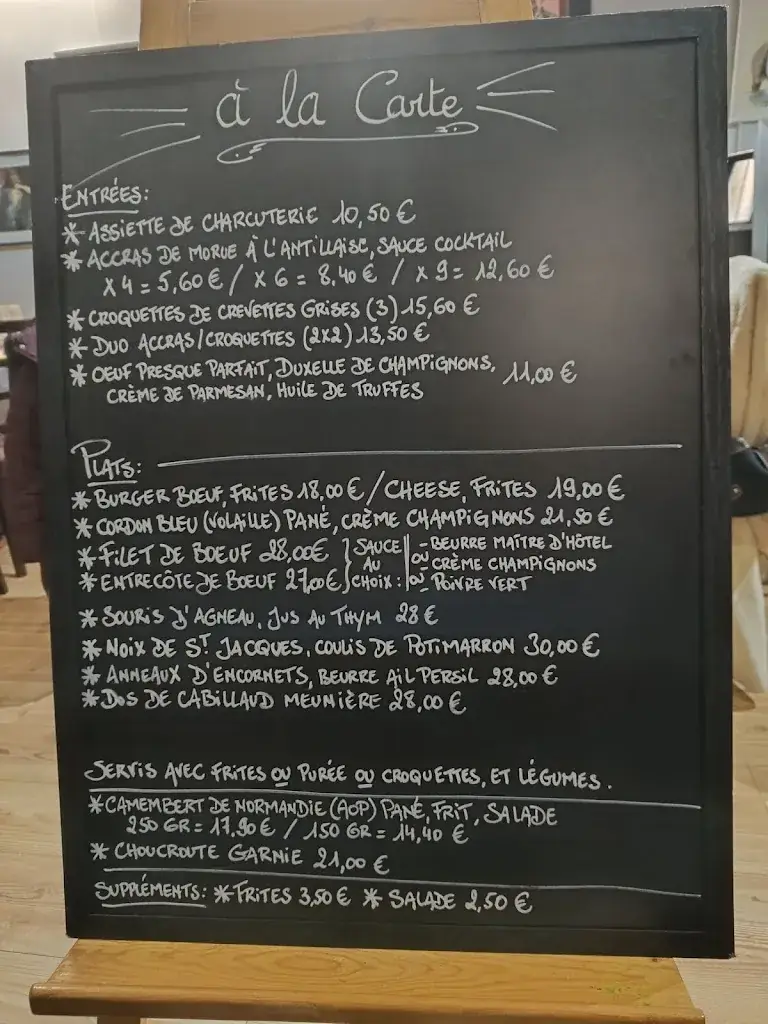 à la Carte
ENTRÉES:
* ASSIETTE DE CHARCUTERIE 10,50 €
* ACCRAS DE MORUE À L'ANTILLAISE, SAUCE COCKTAIL
X 4 = 5,60 € / X 6 = 8,40 € / X 9 = 12,60 €
* CROQUETTES DE CREVETTES GRISES (3) 15,60 €
* DUO ACCRAS/CROQUETTES (2X2) 13,50 €
* OEUF PRESQUE PARFAIT, DUXELLE DE CHAMPIGNONS, 11,00 €
CRÈME DE PARMESAN, HUILE DE TRUFFES
PLATS:
* BURGER BOEUF, FRITES 18,00 € / CHEESE, FRITES 19,00 €
* CORDON BLEU (VOLAILLE) PANÉ, CRÈME CHAMPIGNONS 21,50 €
* FILET DE BOEUF 28,00€ } SAUCE - BEURRE MAÎTRE D'HÔTEL
AU OU - CRÈME CHAMPIGNONS
* ENTRECÔTE DE BOEUF 27,00€ } CHOIX: OU - POIVRE VERT
* SOURIS D'AGNEAU, JUS AU THYM 28 €
* NOIX DE ST JACQUES, COULIS DE POTIMARRON 30,00 €
* ANNEAUX D'ENCORNETS, BEURRE AIL PERSIL 28,00 €
* DOS DE CABILLAUD MEUNIÈRE 28,00 €
SERVIS AVEC FRITES OU PURÉE OU CROQUETTES, ET LÉGUMES.
* CAMEMBERT DE NORMANDIE (AOP) PANÉ, FRIT, SALADE
250 GR = 17,90 € / 150 GR = 14,40 €
* CHOUCROUTE GARNIE 21,00 €
SUPPLÉMENTS: * FRITES 3,50 € * SALADE 2,50 €